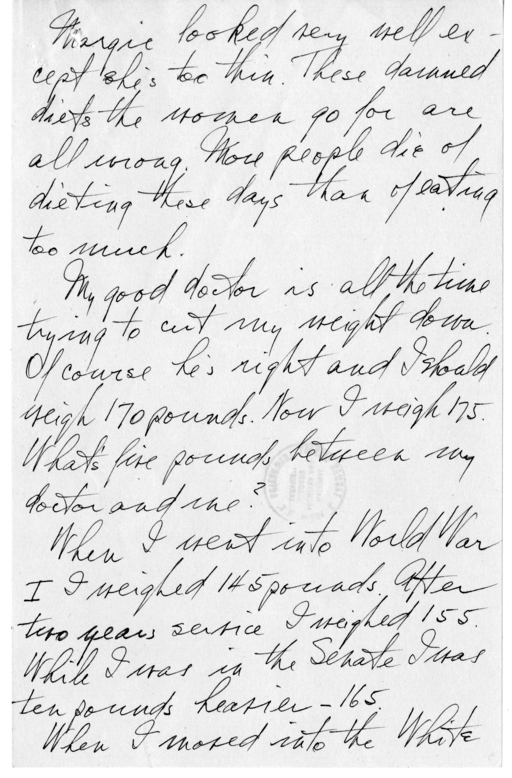 Margie looked very well ex-
cept she's too thin. These damned
diets the women go for are
all wrong. More people die of
dieting these days than of eating
too much.
My good doctor is all the time
trying to cut my weight down.
Of course he's right and I should
weigh 170 pounds. Now I weigh 175.
What's five pounds between my
doctor and me?
When I went into World War
I I weighed 145 pounds. After
two years service I weighed 155.
While I was in the Senate I was
ten pounds heavier - 165.
When I moved into the White